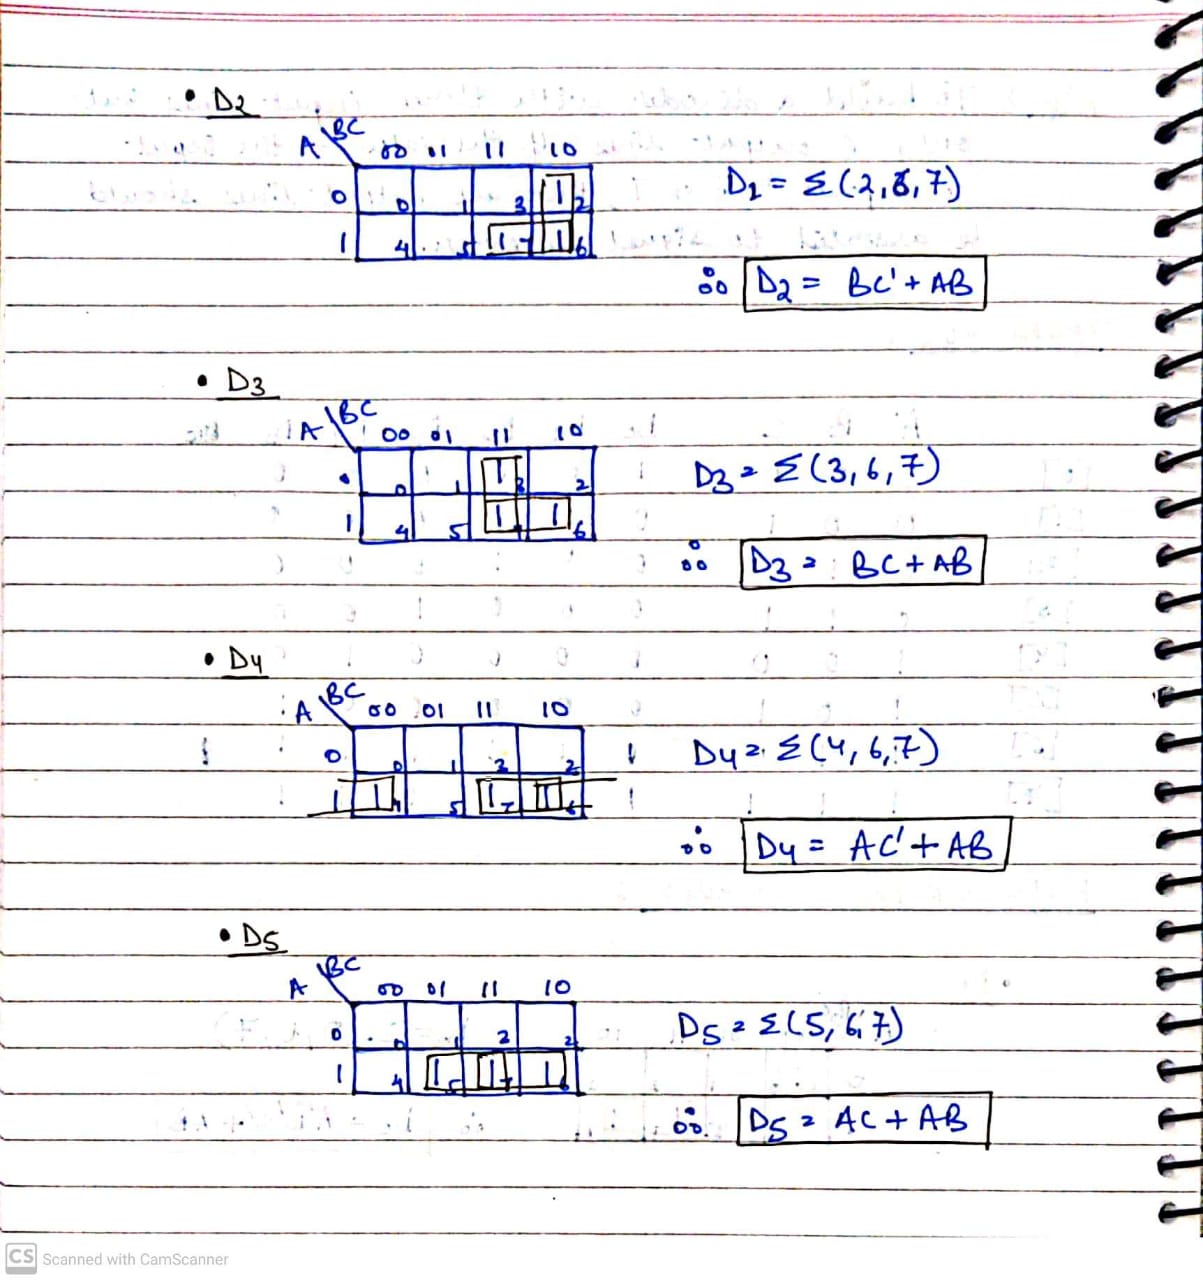 • D2
A \ BC
00 01 11 10
0 0 1 3 1 2
1 4 5 1 7 1 6
D2 = Σ(2,6,7)
∴ D2 = BC' + AB
• D3
A \ BC
00 01 11 10
0 0 1 1 3 2
1 4 5 1 7 1 6
D3 = Σ(3,6,7)
∴ D3 = BC + AB
• D4
A \ BC
00 01 11 10
0 0 1 3 2
1 1 4 5 1 7 1 6
D4 = Σ(4,6,7)
∴ D4 = AC' + AB
• D5
A \ BC
00 01 11 10
0 0 1 2 2
1 4 1 5 1 7 1 6
D5 = Σ(5,6,7)
∴ D5 = AC + AB
CS Scanned with CamScanner